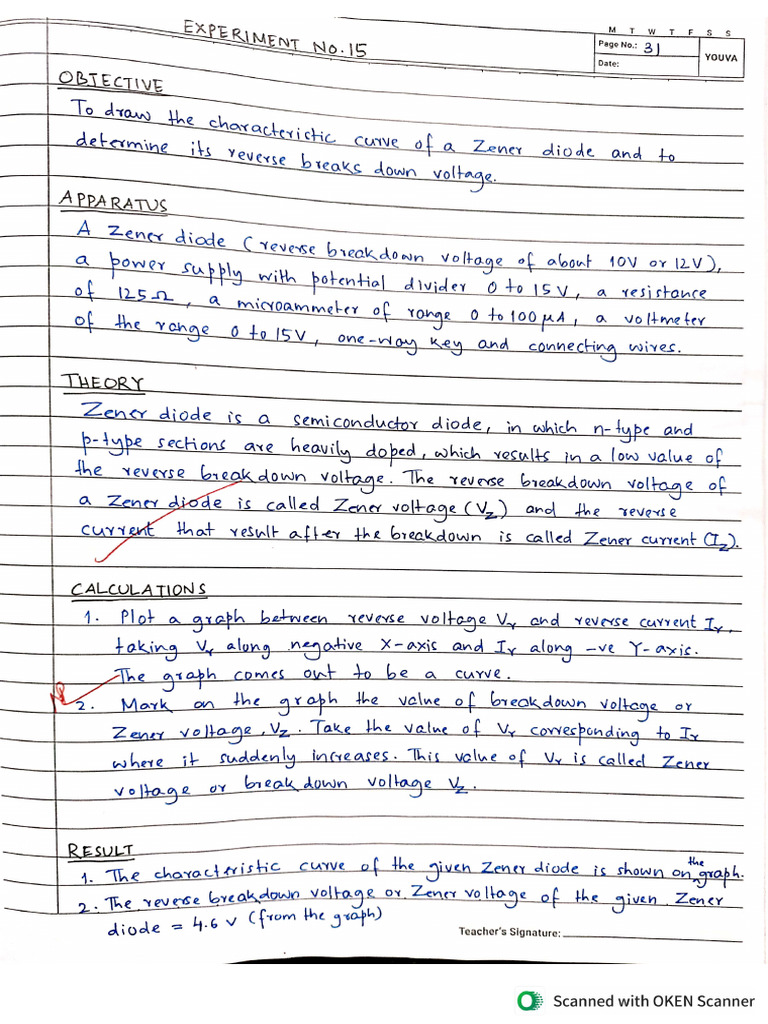 EXPERIMENT NO. 15
M T W T F S S
Page No.: 31
Date:
YOUVA
OBJECTIVE
To draw the characteristic curve of a Zener diode and to
determine its reverse breaks down voltage.
APPARATUS
A Zener diode (reverse breakdown voltage of about 10V or 12V),
a power supply with potential divider 0 to 15V, a resistance
of 125Ω, a microammeter of range 0 to 100 μA, a voltmeter
of the range 0 to 15V, one-way key and connecting wires.
THEORY
Zener diode is a semiconductor diode, in which n-type and
p-type sections are heavily doped, which results in a low value of
the reverse breakdown voltage. The reverse breakdown voltage of
a Zener diode is called Zener voltage (Vz) and the reverse
current that result after the breakdown is called Zener current (Iz).
CALCULATIONS
1. Plot a graph between reverse voltage Vr and reverse current Ir,
taking Vr along negative X-axis and Ir along -ve Y-axis.
The graph comes out to be a curve.
2. Mark on the graph the value of breakdown voltage or
Zener voltage, Vz. Take the value of Vr corresponding to Ir
where it suddenly increases. This value of Vr is called Zener
voltage or break down voltage Vz.
RESULT
1. The characteristic curve of the given Zener diode is shown on the graph.
2. The reverse breakdown voltage or Zener voltage of the given Zener
diode = 4.6 v (from the graph)
Teacher's Signature:
Scanned with OKEN Scanner